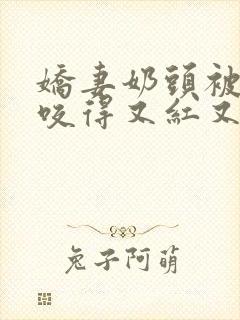 嬌妻奶頭被
咬得又紅又
兔子阿萌